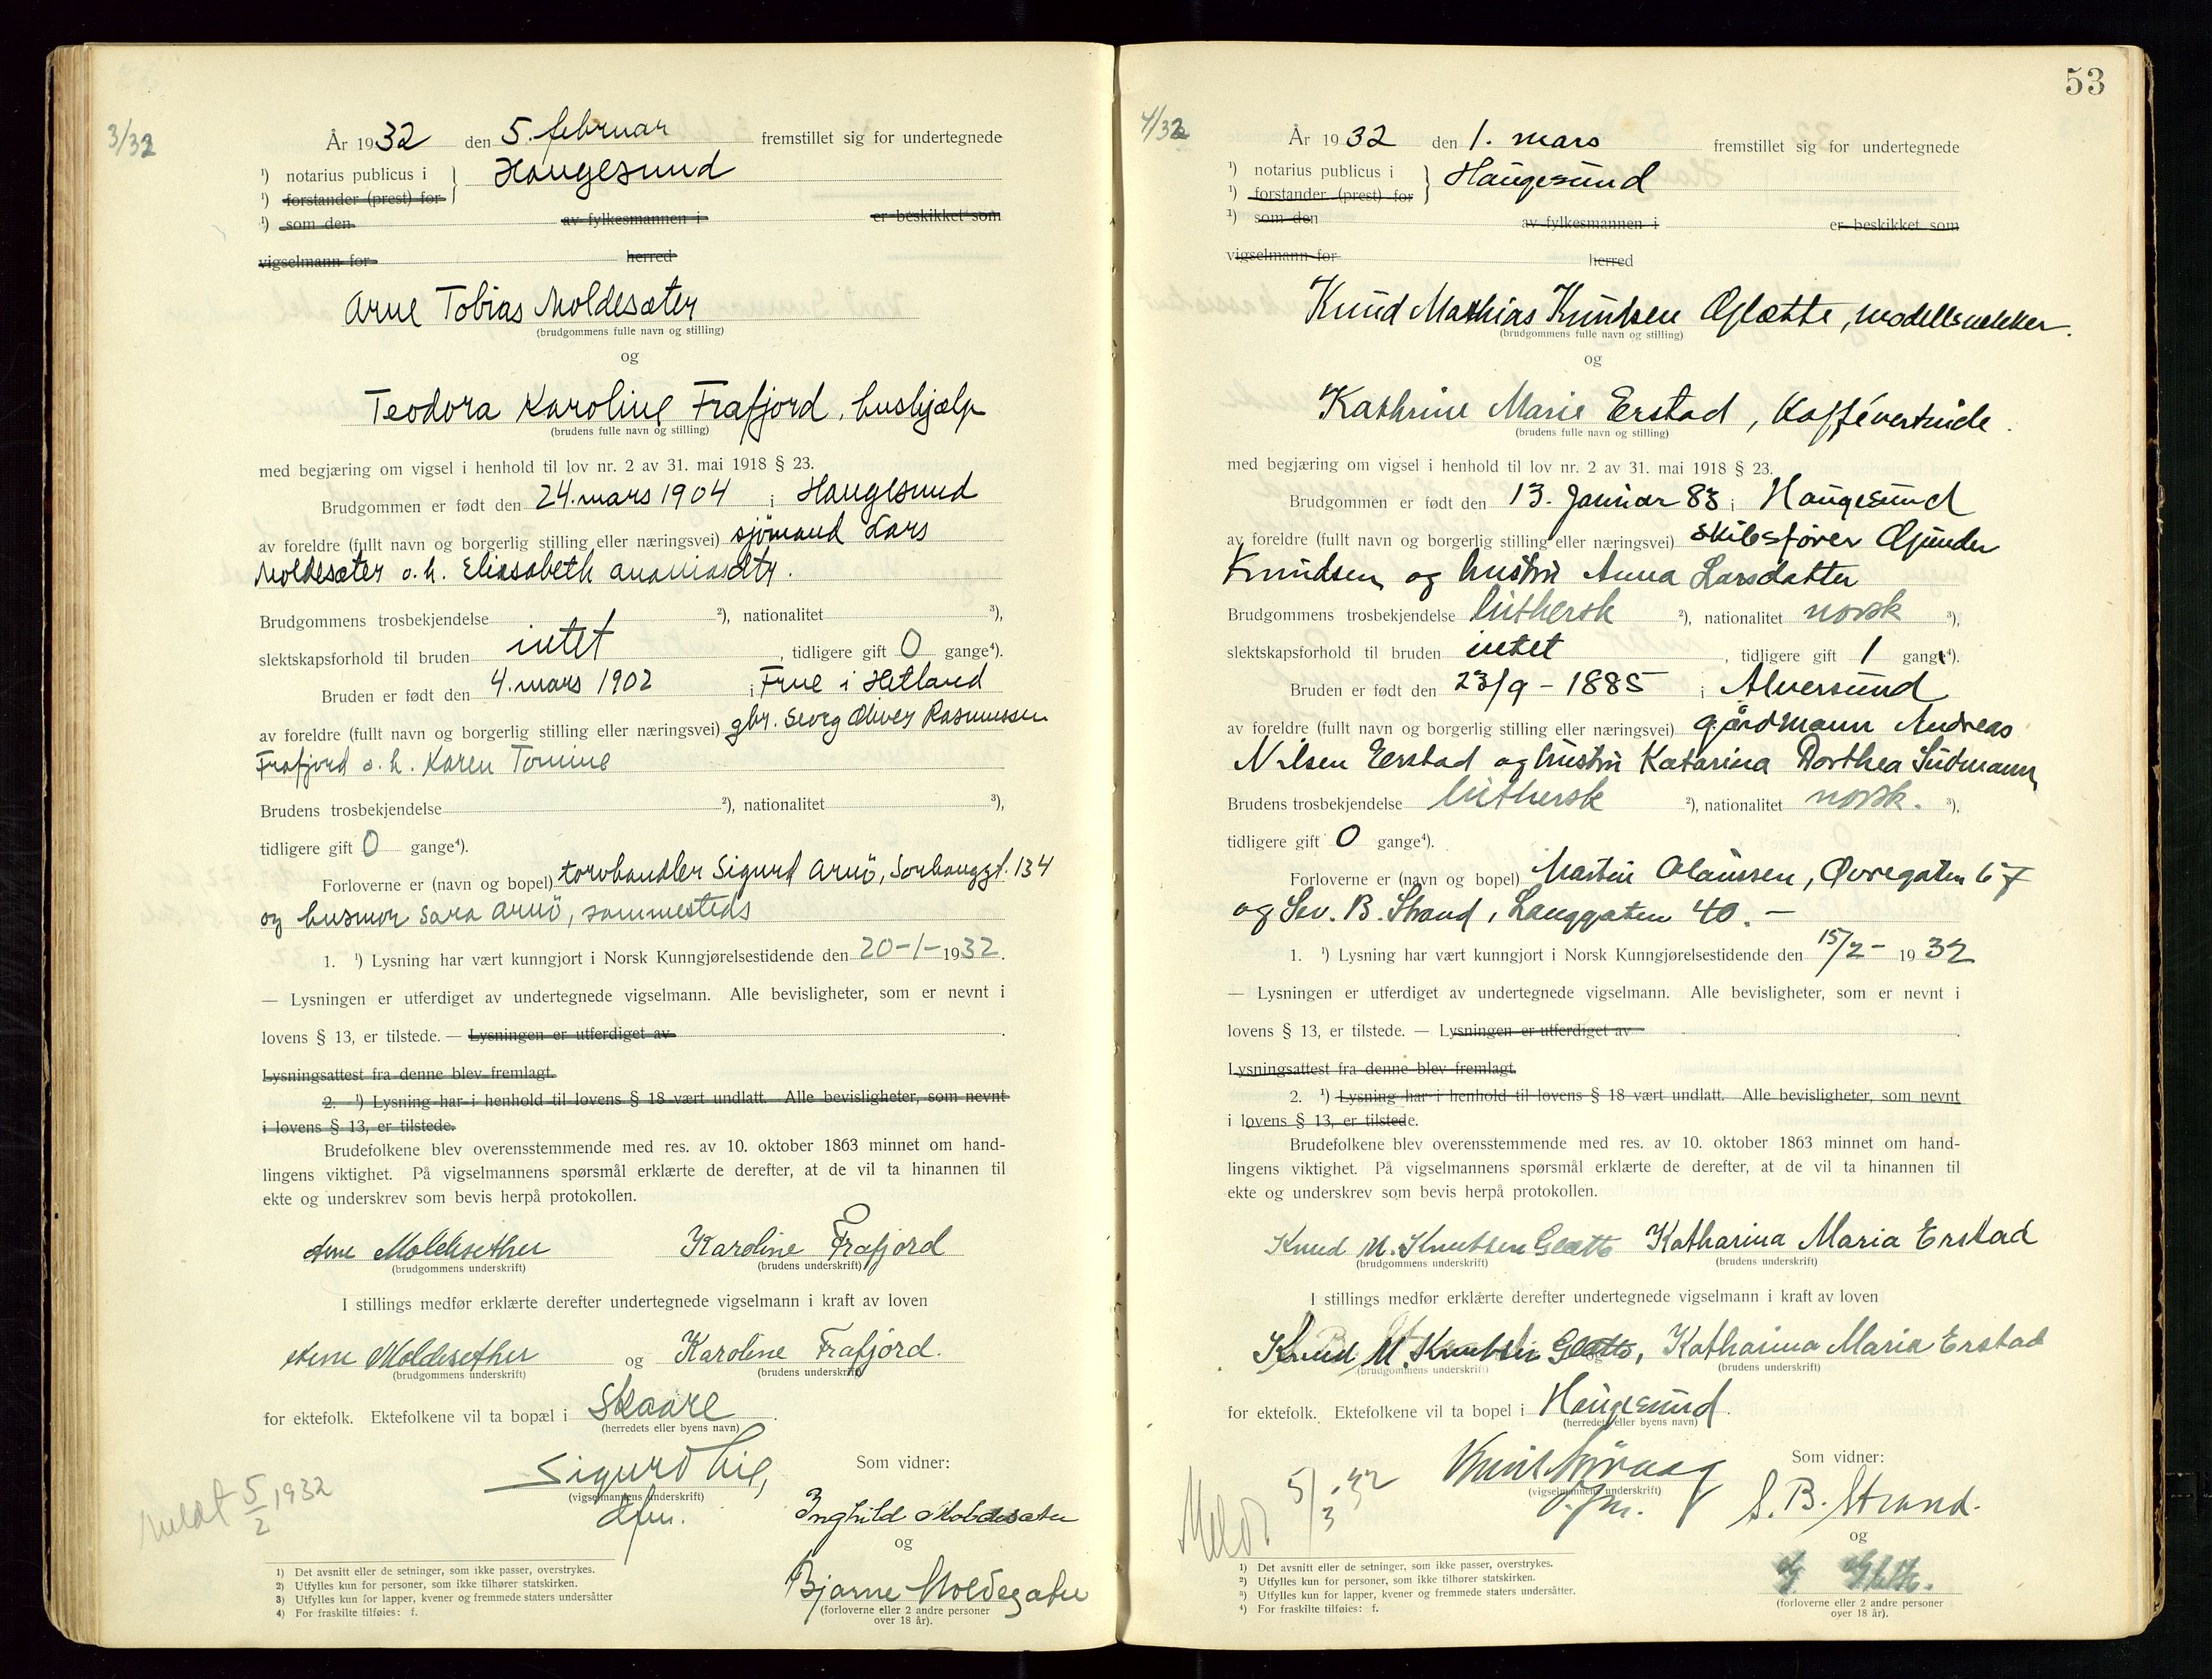 3/32
År 1932 den 5. februar fremstillet sig for undertegnede
¹) notarius publicus i } Haugesund
¹) forstander (prest) for
¹) som den av fylkesmannen i er beskikket som
vigselmann for herred
Arne Tobias Moldesæter
(brudgommens fulle navn og stilling)
og
Teodora Karoline Frafjord, hushjælp
(brudens fulle navn og stilling)
med begjæring om vigsel i henhold til lov nr. 2 av 31. mai 1918 § 23.
Brudgommen er født den 24. mars 1904 i Haugesund
av foreldre (fullt navn og borgerlig stilling eller næringsvei) sjömand Lars
Moldesæter o. h. Eliasabeth Ananiasdtr.
Brudgommens trosbekjendelse ²), nationalitet ³),
slektskapsforhold til bruden intet, tidligere gift 0 gange⁴).
Bruden er født den 4. mars 1902 i Frue i Hetland
av foreldre (fullt navn og borgerlig stilling eller næringsvei) gbr. Georg Oliver Rasmussen
Frafjord o. h. Karen Tomine
Brudens trosbekjendelse ²), nationalitet ³),
tidligere gift 0 gange⁴).
Forloverne er (navn og bopel) torvhandler Sigurd Arnö, Sørhauggt. 134
og husmor Sara Arnö, sammesteds
1. ¹) Lysning har vært kunngjort i Norsk Kunngjørelsestidende den 20-1- 1932.
— Lysningen er utferdiget av undertegnede vigselmann. Alle bevisligheter, som er nevnt i
lovens § 13, er tilstede. — Lysningen er utferdiget av .
Lysningsattest fra denne blev fremlagt.
2. ¹) Lysning har i henhold til lovens § 18 vært undlatt. Alle bevisligheter, som nevnt
i lovens § 13, er tilstede.
Brudefolkene blev overensstemmende med res. av 10. oktober 1863 minnet om hand-
lingens viktighet. På vigselmannens spørsmål erklærte de derefter, at de vil ta hinannen til
ekte og underskrev som bevis herpå protokollen.
Arne Moldesether Karoline Frafjord
(brudgommens underskrift) (brudens underskrift)
I stillings medfør erklærte derefter undertegnede vigselmann i kraft av loven
Arne Moldesether og Karoline Frafjord.
(brudgommens underskrift) (brudens underskrift)
for ektefolk. Ektefolkene vil ta bopæl i Skaare.
(herredets eller byens navn)
Sigurd Lie, Som vidner:
(vigselmannens underskrift)
dfm.
Meldt 5/2 1932
Inghild Moldesæter
og
Bjarne Moldesæter
(forloverne eller 2 andre personer
over 18 år).
1) Det avsnitt eller de setninger, som ikke passer, overstrykes.
2) Utfylles kun for personer, som ikke tilhører statskirken.
3) Utfylles kun for lapper, kvener og fremmede staters undersåtter
4) For fraskilte tilføies: f.
53
4/32
År 1932 den 1. mars fremstillet sig for undertegnede
¹) notarius publicus i } Haugesund
¹) forstander (prest) for
¹) som den av fylkesmannen i er beskikket som
vigselmann for herred
Knud Mathias Knudsen Glætte, modellsnekker.
(brudgommens fulle navn og stilling)
og
Kathrine Marie Erstad, Kaffévertinde.
(brudens fulle navn og stilling)
med begjæring om vigsel i henhold til lov nr. 2 av 31. mai 1918 § 23.
Brudgommen er født den 13. Januar 83 i Haugesund
av foreldre (fullt navn og borgerlig stilling eller næringsvei) skibsfører Gunder
Knudsen og hustru Anna Larsdatter
Brudgommens trosbekjendelse luthersk ²), nationalitet norsk ³),
slektskapsforhold til bruden intet, tidligere gift 1 gang⁴).
Bruden er født den 23/9 - 1885 i Alversund
av foreldre (fullt navn og borgerlig stilling eller næringsvei) gårdmann Andreas
Nilsen Erstad og hustru Katarina Dorthea Sudmann
Brudens trosbekjendelse luthersk ²), nationalitet norsk. ³),
tidligere gift 0 gange⁴).
Forloverne er (navn og bopel) Martin Olaussen, Øvregaten 67
og Sev. B. Strand, Langgaten 40. —
1. ¹) Lysning har vært kunngjort i Norsk Kunngjørelsestidende den 15/2 - 1932
— Lysningen er utferdiget av undertegnede vigselmann. Alle bevisligheter, som er nevnt i
lovens § 13, er tilstede. — Lysningen er utferdiget av .
Lysningsattest fra denne blev fremlagt.
2. ¹) Lysning har i henhold til lovens § 18 vært undlatt. Alle bevisligheter, som nevnt
i lovens § 13, er tilstede.
Brudefolkene blev overensstemmende med res. av 10. oktober 1863 minnet om hand-
lingens viktighet. På vigselmannens spørsmål erklærte de derefter, at de vil ta hinannen til
ekte og underskrev som bevis herpå protokollen.
Knud M. Knutsen Glætte Katharina Maria Erstad
(brudgommens underskrift) (brudens underskrift)
I stillings medfør erklærte derefter undertegnede vigselmann i kraft av loven
Knud M. Knutsen Glætte, Katharina Maria Erstad
(brudgommens underskrift) og (brudens underskrift)
for ektefolk. Ektefolkene vil ta bopel i Haugesund.
(herredets eller byens navn)
Meldt 5/3 32 Som vidner:
(vigselmannens underskrift)
S. B. Strand.
og
(forloverne eller 2 andre personer
over 18 år).
¹) Det avsnitt eller de setninger, som ikke passer, overstrykes.
²) Utfylles kun for personer, som ikke tilhører statskirken.
³) Utfylles kun for lapper, kvener og fremmede staters undersåtter.
⁴) For fraskilte tilføies: f.